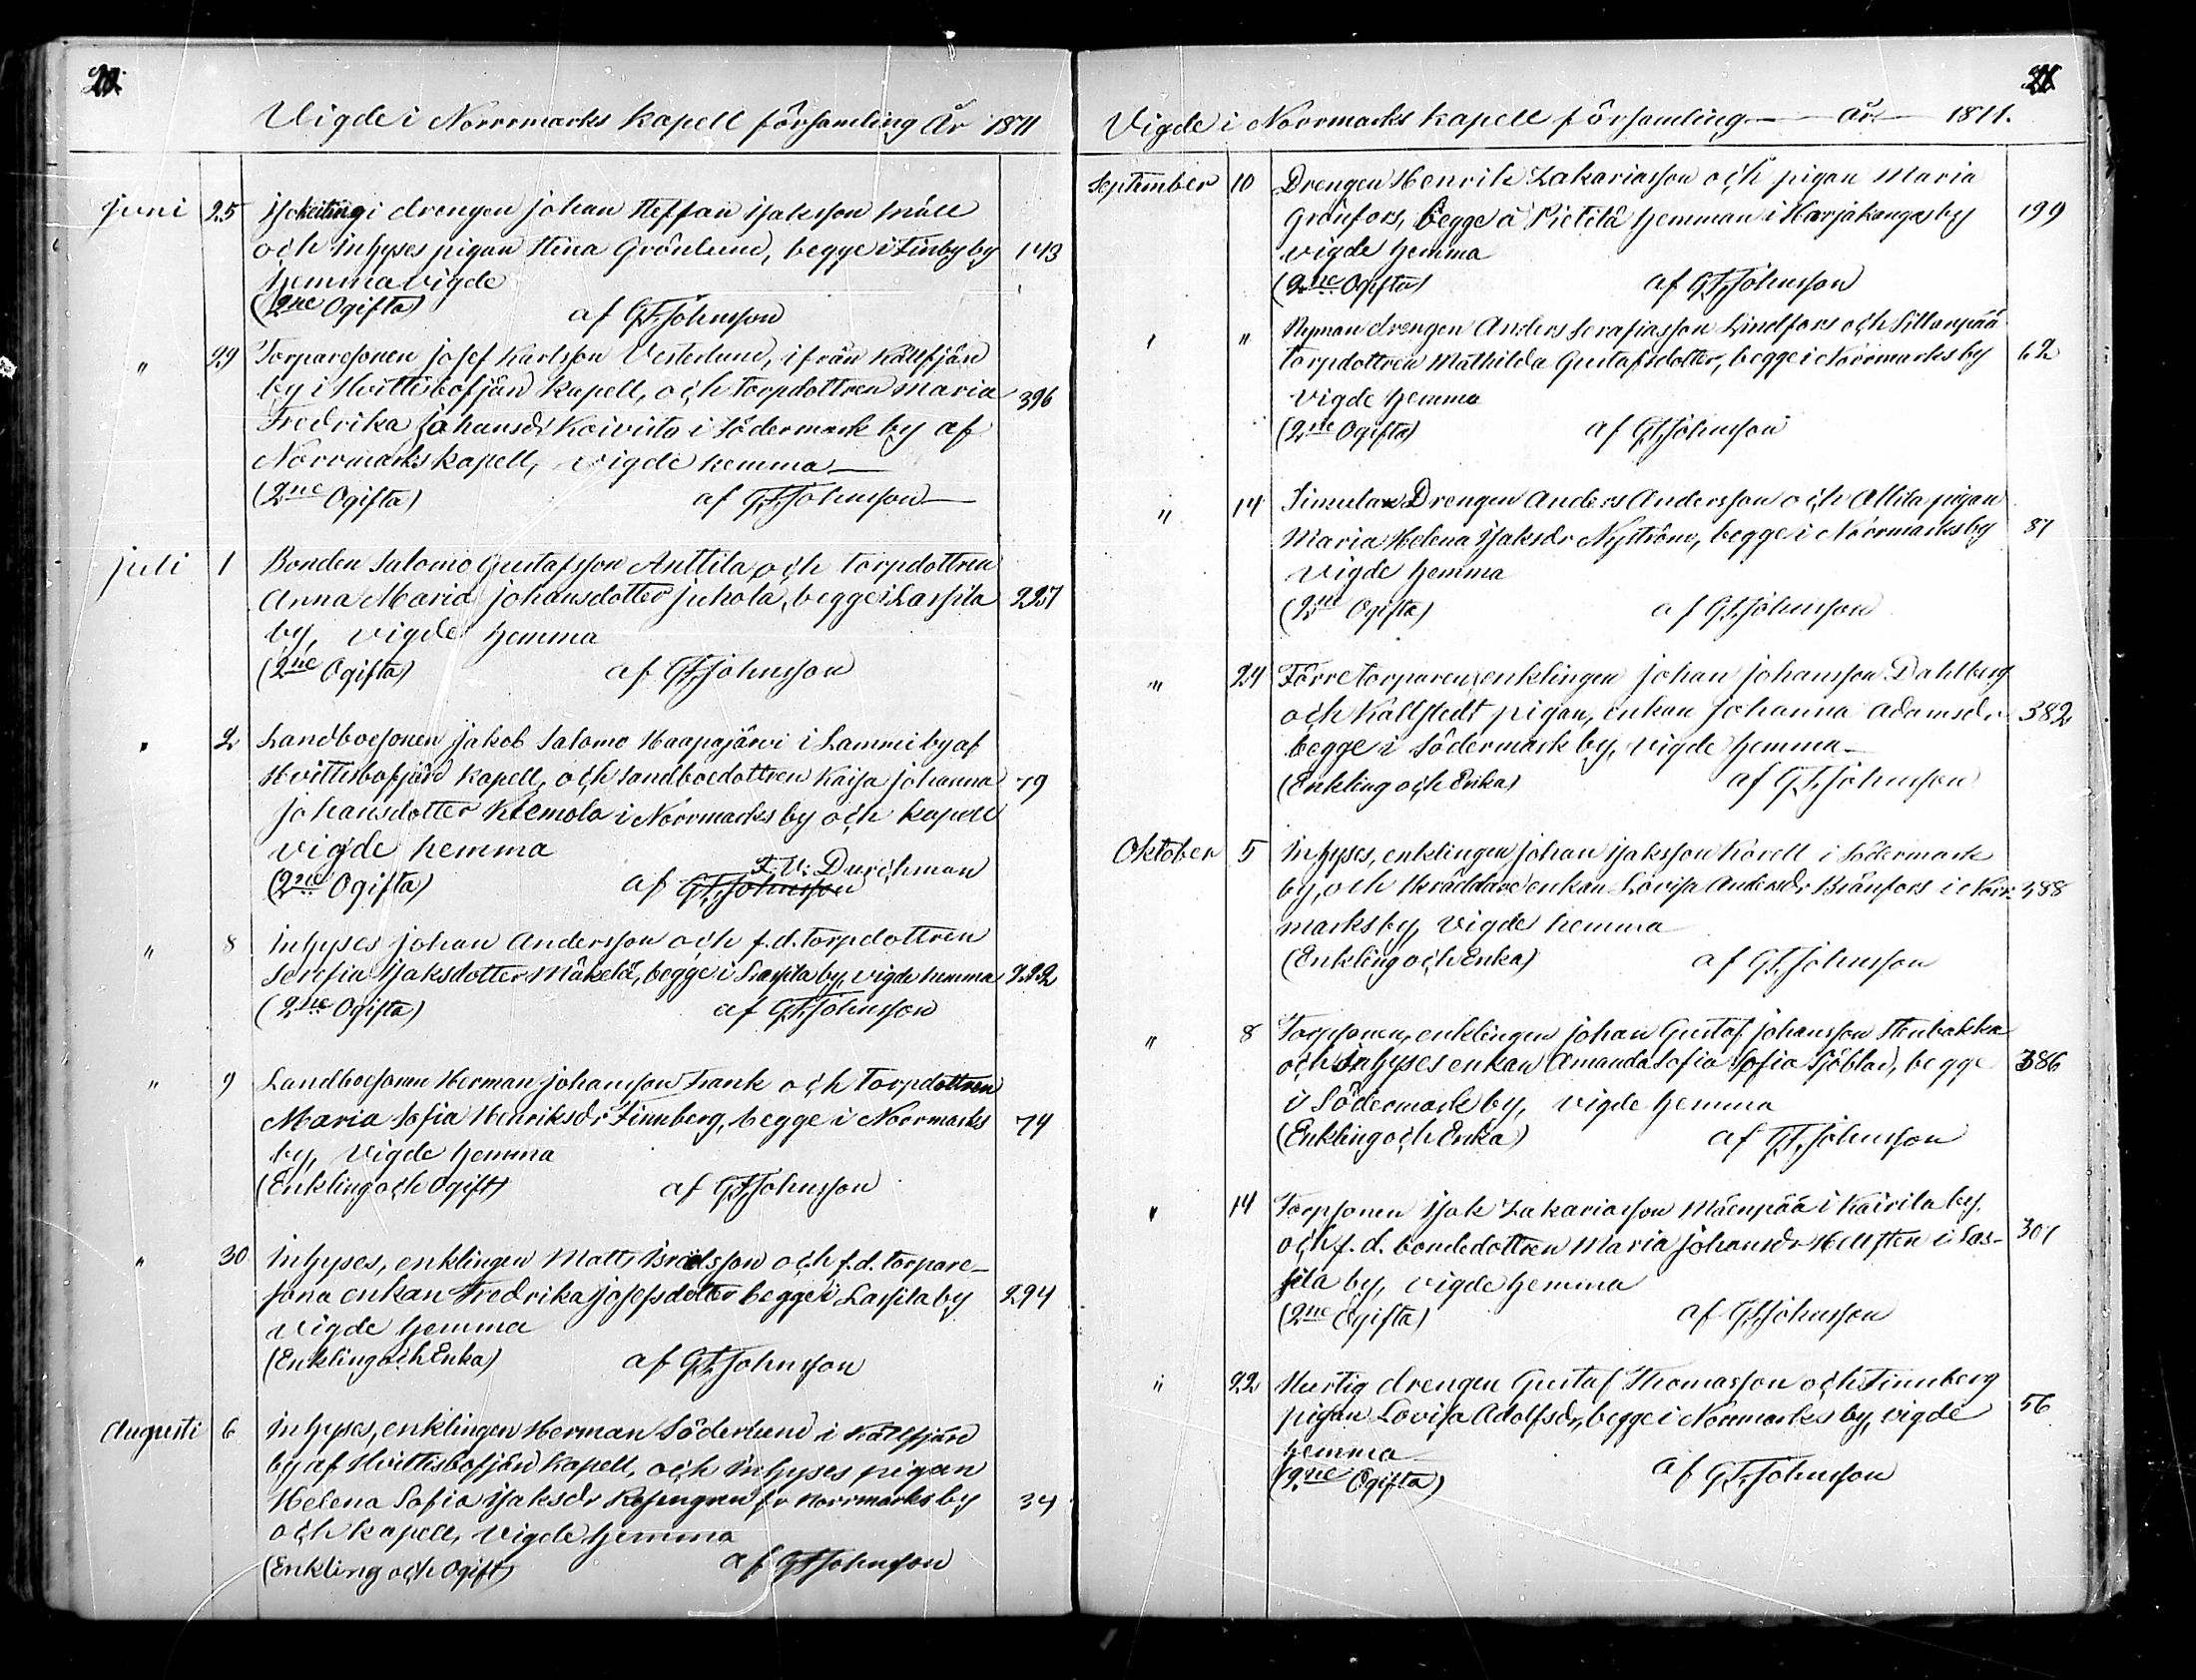 20.
Vigde i Norrmarks Kapell församling År 1871
Juni 25 drengen Johan Steffan Isaksson Mäll
och Inhyses pigan Stina Grönlund, begge i Finby by 143
hemma vigde
(2ne Ogifta) af G.F. Johnsson
" 29 Torparesonen Josef Karlsson Vesterlund, ifrån Kållfjärd
by i Hvittisbofjärd Kapell, och torpdottren Maria 396
Fredrika Johansdr Koivisto i Södermark by af
Norrmarks kapell, vigde hemma
(2ne Ogifta) af G.F. Johnsson
Juli 1 Bonden Salomo Gustafsson Anttila och torpdottren
Anna Maria Johansdotter Juhola, begge i Lassila 227
by, vigde hemma
(2ne Ogifta) af G.F. Johnsson
" 2 Landboesonen Jakob Salomo Haapajärvi i Lammi by af
Hvittisbofjärd Kapell, och landboedottren Kaisa Johanna 79
Johansdotter Klemola i Norrmarks by och kapell
vigde hemma
F.V. Durchman
(2ne Ogifta) af G.F. Johnsson
" 8 Inhyses Johan Andersson och f.d. torpdottren
Serefia Isaksdotter Mäkelä, begge i Lassila by, vigde hemma 222
(2ne Ogifta) af G.F. Johnsson
" 9 Landboesonen Herman Johansson Frank och Torpdottren
Maria Sofia Henriksdr Finnberg, begge i Norrmarks 74
by, vigde hemma
(Enkling och Ogift) af G.F. Johnsson
" 30 Inhyses, enklingen Matts Israelsson och f.d. torpare-
sona enkan Fredrika Josefsdotter begge i Lassila by 294
vigde hemma
(Enkling och Enka) af G.F. Johnsson
Augusti 6 Inhyses, enklingen Herman Söderlund i Kållfjärd
by af Hvittisbofjärd Kapell, och Inhyses pigan
Helena Sofia Isaksdr Rosengren fr Norrmarks by 34
och kapell, vigde hemma
(Enkling och Ogift) af G.F. Johnsson
21
Vigde i Norrmarks Kapell församling — år — 1871.
September 10 Drengen Henrik Zakariasson och pigan Maria
Grönfors, begge å Pietilä hemman i Harjakangas by 199
vigde hemma
(2ne Ogifta) af G.F. Johnsson
" " Nyman drengen Anders Serafiasson Lindfors och Sillanpää
torpdottren Mathilda Gustafsdotter, begge i Norrmarks by 62
vigde hemma
(2ne Ogifta) af G.F. Johnsson
" 14 Simula Drengen Anders Andersson och Attila pigan
Maria Helena Isaksdr Nyström, begge i Norrmarks by 87
vigde hemma
(2ne Ogifta) af G.F. Johnsson
" 24 Förre torparen, enklingen Johan Johansson Dahlberg
och Kallstedt pigan, enkan Johanna Adamsdr 382
begge i Södermark by, vigde hemma
(Enkling och Enka) af G.F. Johnsson
Oktober 5 Inhyses, enklingen Johan Isaksson Korell i Södermark
by, och skräddare enkan Lovisa Andersdr Brånfors i Norr- 388
marks by, vigde hemma
(Enkling och Enka) af G.F. Johnsson
" 8 Torpsonen, enklingen Johan Gustaf Johansson Stenbakka
och Inhyses enkan Amanda Sofia Sofia Sjöblad, begge 386
i Södermark by, vigde hemma
(Enkling och Enka) af G.F. Johnsson
" 14 Torpsonen Isak Zakariasson Mäenpää i Kairila by.
och f. d. bondedottren Maria Johansdr Hellsten i Las- 301
sila by, vigde hemma
(2ne Ogifta) af G.F. Johnsson
" 22 Hurtig drengen Gustaf Thomasson och Finnberg
pigan Lovisa Adolfsdr, begge i Norrmarks by, vigde 56
hemma
(2ne Ogifta) af G.F. Johnsson